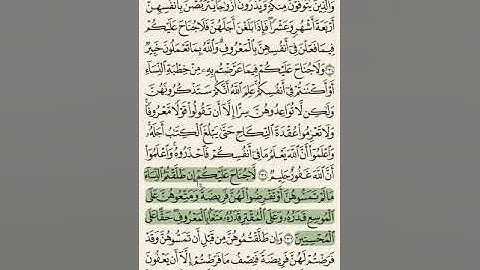 وَٱلَّذِينَ يُتَوَفَّوْنَ مِنكُمْ وَيَذَرُونَ أَزْوَٰجًا يَتَرَبَّصْنَ بِأَنفُسِهِنَّ
أَرْبَعَةَ أَشْهُرٍ وَعَشْرًا ۖ فَإِذَا بَلَغْنَ أَجَلَهُنَّ فَلَا جُنَاحَ عَلَيْكُمْ
فِيمَا فَعَلْنَ فِىٓ أَنفُسِهِنَّ بِٱلْمَعْرُوفِ ۗ وَٱللَّهُ بِمَا تَعْمَلُونَ خَبِيرٌ
﴿٢٣٤﴾ وَلَا جُنَاحَ عَلَيْكُمْ فِيمَا عَرَّضْتُم بِهِۦ مِنْ خِطْبَةِ ٱلنِّسَآءِ
أَوْ أَكْنَنتُمْ فِىٓ أَنفُسِكُمْ ۚ عَلِمَ ٱللَّهُ أَنَّكُمْ سَتَذْكُرُونَهُنَّ
وَلَٰكِن لَّا تُوَاعِدُوهُنَّ سِرًّا إِلَّآ أَن تَقُولُوا۟ قَوْلًا مَّعْرُوفًا ۚ
وَلَا تَعْزِمُوا۟ عُقْدَةَ ٱلنِّكَاحِ حَتَّىٰ يَبْلُغَ ٱلْكِتَٰبُ أَجَلَهُۥ ۚ
وَٱعْلَمُوٓا۟ أَنَّ ٱللَّهَ يَعْلَمُ مَا فِىٓ أَنفُسِكُمْ فَٱحْذَرُوهُ ۚ وَٱعْلَمُوٓا۟
أَنَّ ٱللَّهَ غَفُورٌ حَلِيمٌ ﴿٢٣٥﴾ لَّا جُنَاحَ عَلَيْكُمْ إِن طَلَّقْتُمُ ٱلنِّسَآءَ
مَا لَمْ تَمَسُّوهُنَّ أَوْ تَفْرِضُوا۟ لَهُنَّ فَرِيضَةً ۚ وَمَتِّعُوهُنَّ عَلَى
ٱلْمُوسِعِ قَدَرُهُۥ وَعَلَى ٱلْمُقْتِرِ قَدَرُهُۥ مَتَٰعًۢا بِٱلْمَعْرُوفِ ۖ حَقًّا عَلَى
ٱلْمُحْسِنِينَ ﴿٢٣٦﴾ وَإِن طَلَّقْتُمُوهُنَّ مِن قَبْلِ أَن تَمَسُّوهُنَّ وَقَدْ
فَرَضْتُمْ لَهُنَّ فَرِيضَةً فَنِصْفُ مَا فَرَضْتُمْ إِلَّآ أَن يَعْفُونَ